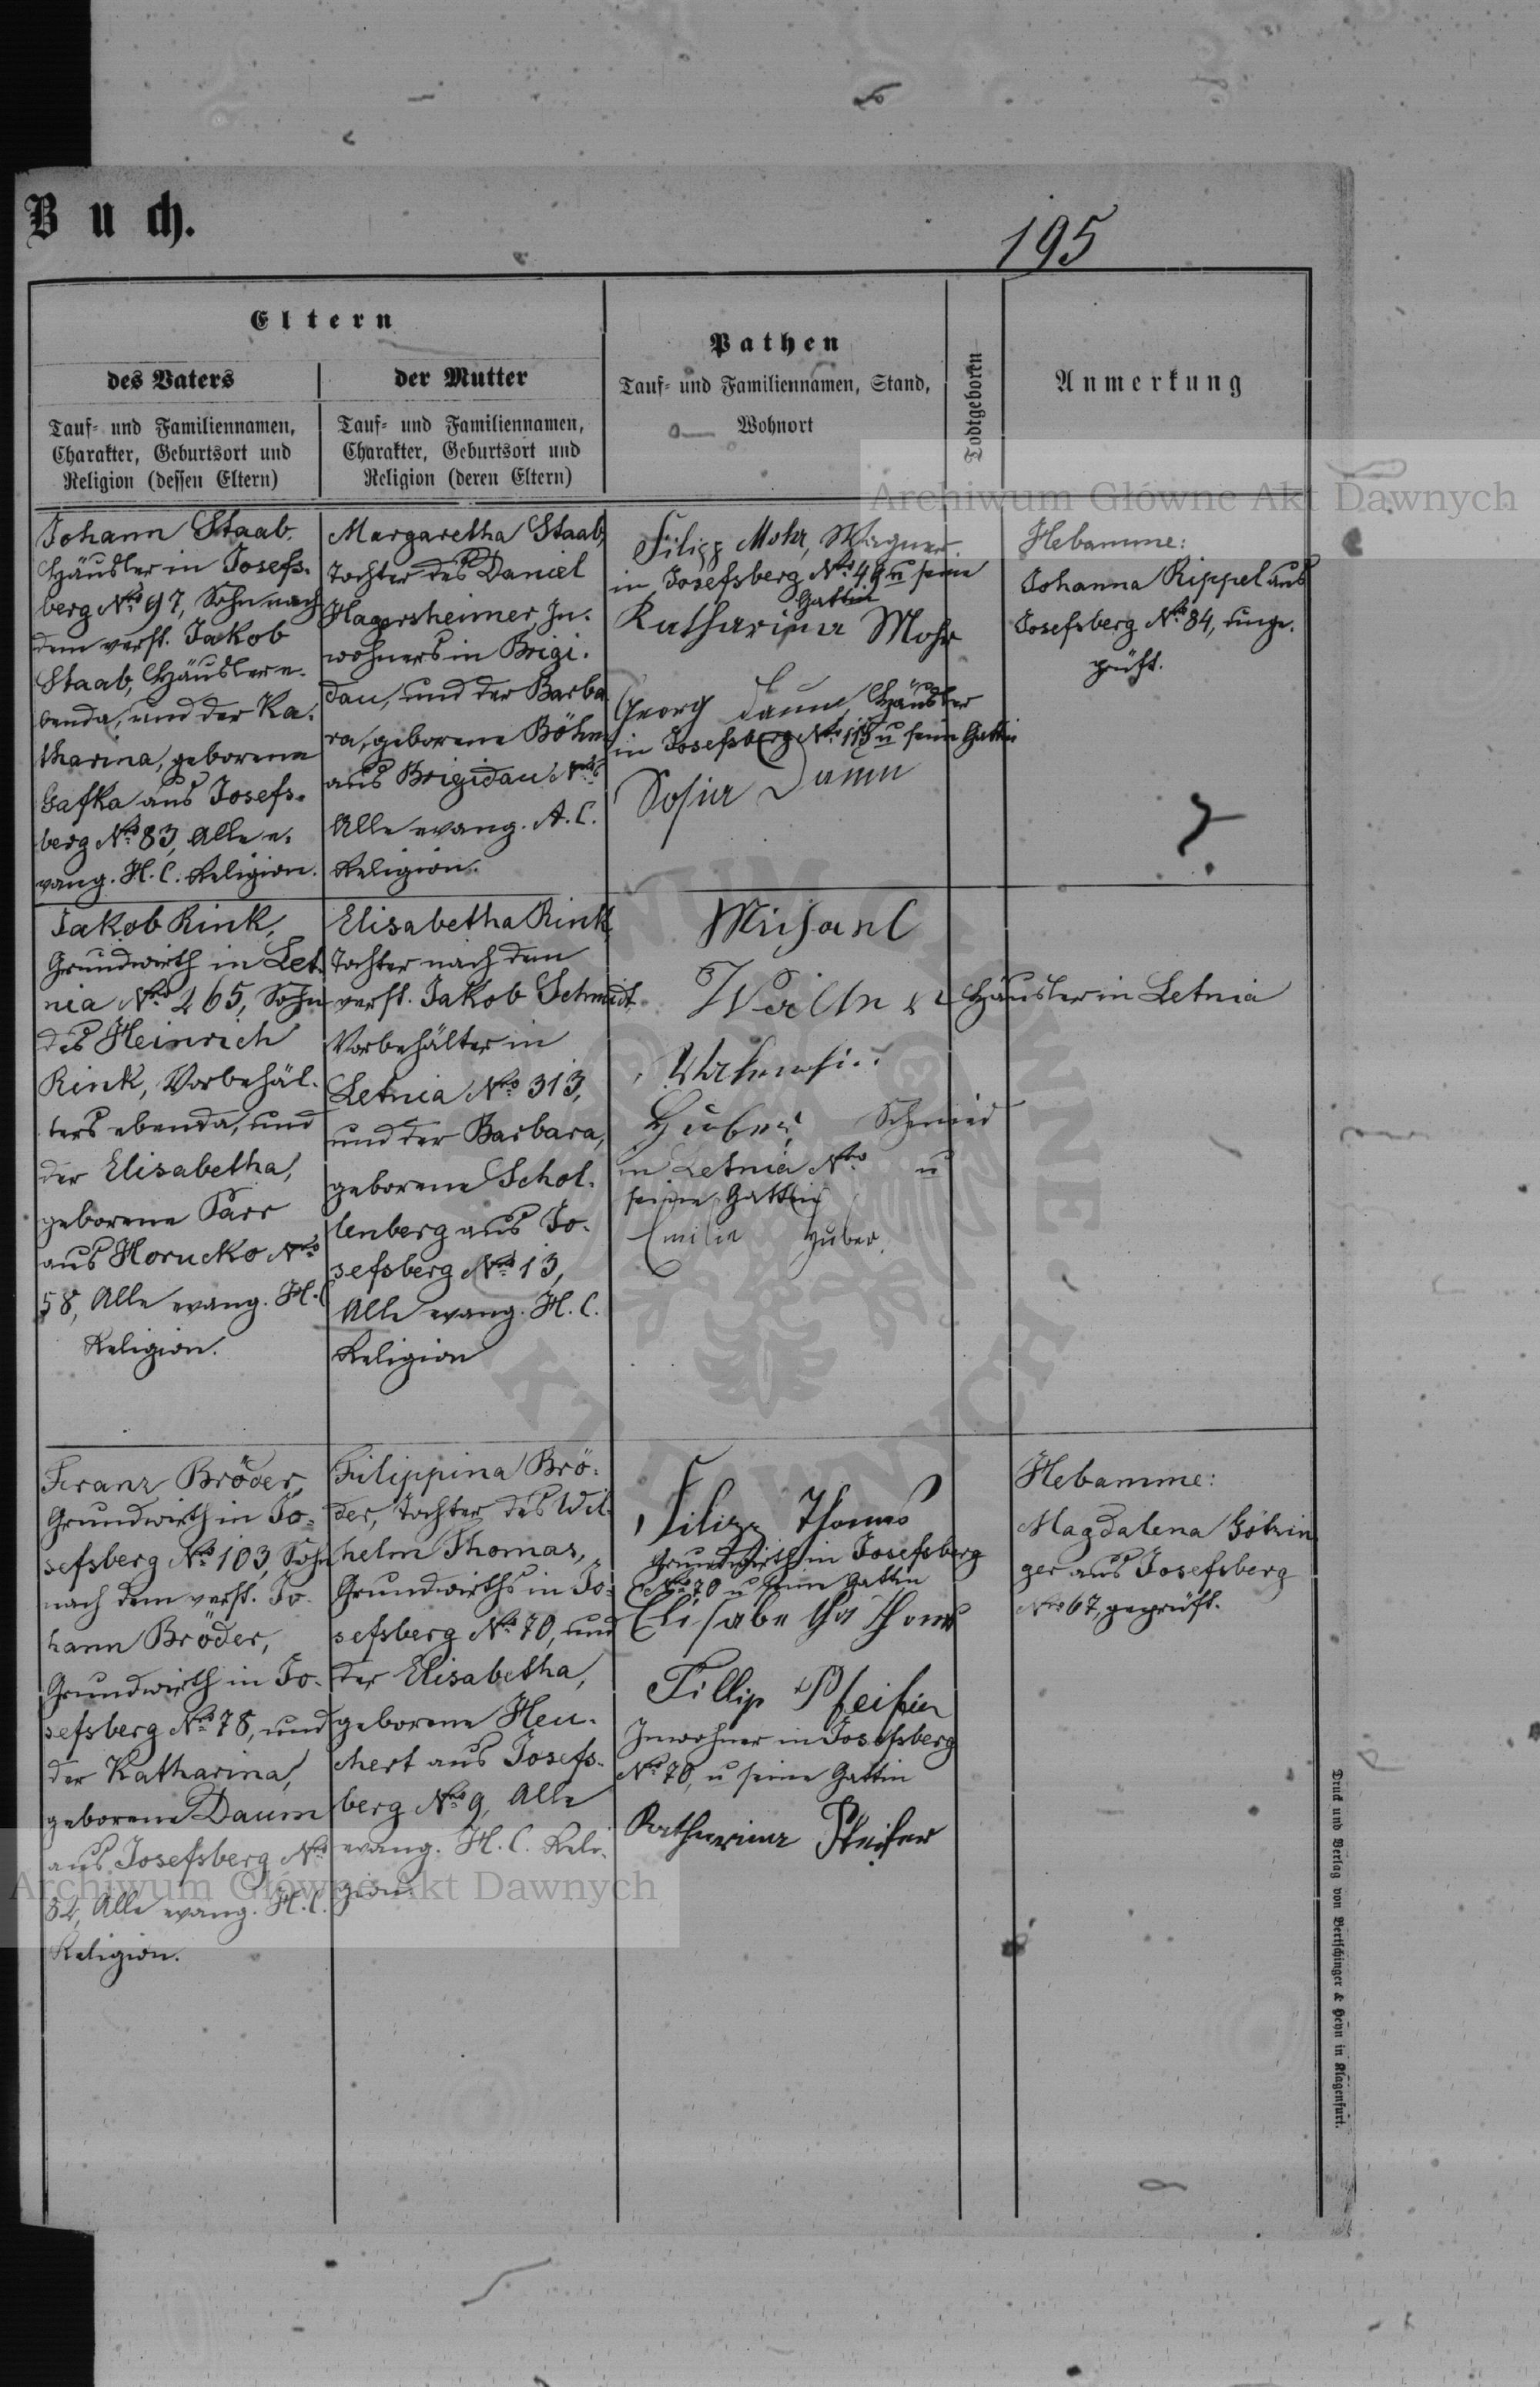 Buch.
195
Eltern
des Vaters
der Mutter
Tauf- und Familiennamen,
Charakter, Geburtsort und
Religion (dessen Eltern)
Tauf- und Familiennamen,
Charakter, Geburtsort und
Religion (deren Eltern)
Pathen
Tauf- und Familiennamen, Stand,
Wohnort
Todtgeboren
Anmerkung
Archiwum Główne Akt Dawnych
Johann Staab,
Häusler in Josefs-
berg No 97, Sohn nach
dem verst. Jakob
Staab, Häusler e-
benda, und der Ka-
tharina, geborene
Gafka aus Josefs-
berg No 83, Alle e-
vang. H.C. Religion.
Margaretha Staab,
Tochter des Daniel
Hagersheimer, In-
wohners in Brigi-
dau, und der Barba
ra, geborene Böhm
aus Brigidau No
Alle evang. A.C.
Religion.
Filipp Mohr, Wagner
in Josefsberg No 49 u seine
Gattin
Katharina Mohr
Georg Daum, Häusler
in Josefsberg No 115 u seine Gattin
Sofia Daum
Hebamme:
Johanna Rippel aus
Josefsberg No 84, unge-
prüft.
Jakob Rink,
Grundwirth in Let-
nia No 265, Sohn
des Heinrich
Rink, Vorbehäl-
ters ebenda, und
der Elisabetha,
geborene Parr
aus Horucko No
58, Alle evang. H.C.
Religion.
Elisabetha Rink,
Tochter nach dem
verst. Jakob Schmidt,
Vorbehälter in
Letnia No 313,
und der Barbara,
geborene Schol-
lenberg aus Jo-
sefsberg No 13,
Alle evang. H.C.
Religion
Michael
Häusler in Letnia
Huber, Schmied
in Letnia No u
seine Gattin
Emilia Huber
Franz Bröder,
Grundwirth in Jo-
sefsberg No 103, Sohn
nach dem verst. Jo-
hann Bröder,
Grundwirth in Jo-
sefsberg No 78, und
der Katharina,
geborene Daum
aus Josefsberg No
32, Alle evang. H.C.
Religion.
Filippina Brö-
der, Tochter des Wil-
helm Thomas,
Grundwirths in Jo-
sefsberg No 70, und
der Elisabetha,
geborene Heu-
chert aus Josefs-
berg No 9, Alle
evang. H.C. Reli-
gion.
Filipp Thomas
Grundwirth in Josefsberg
No 70 u seine Gattin
Elisabetha Thomas
Fillip Pfeifer
Inwohner in Josefsberg
No 70, u seine Gattin
Katharina Pfeifer
Hebamme:
Magdalena Götzin-
ger aus Josefsberg
No 67, geprüft.
Archiwum Główne Akt Dawnych
Druck und Verlag von Bertschinger & Heyn in Klagenfurt.